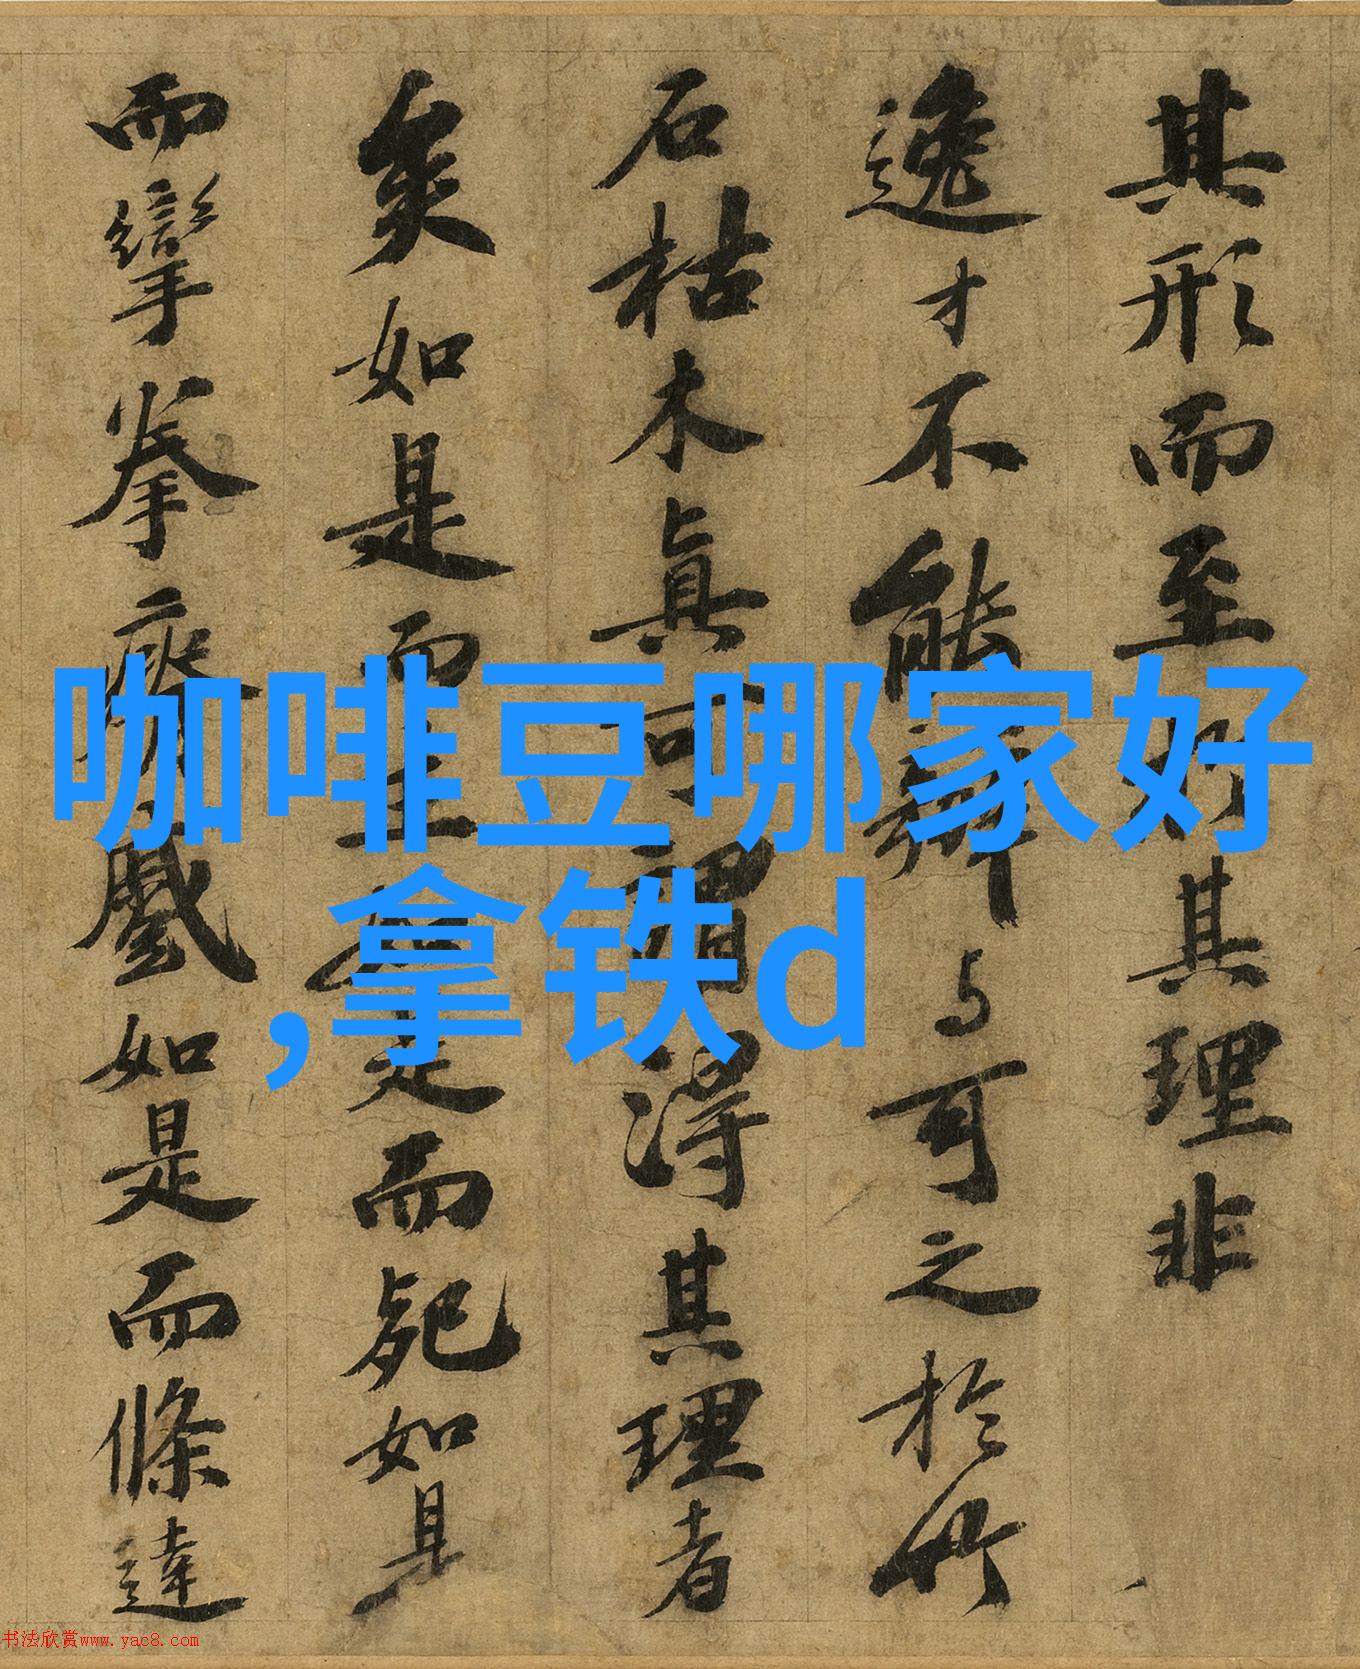 其形而至於其理非
逸才不能辨与可之於竹
石枯木真可謂得其理者
矣如是而生如是而死如是
而攣拳瘠蹙如是而條達
咖啡豆哪家好
,拿铁d
书法欣赏www.yac8.com